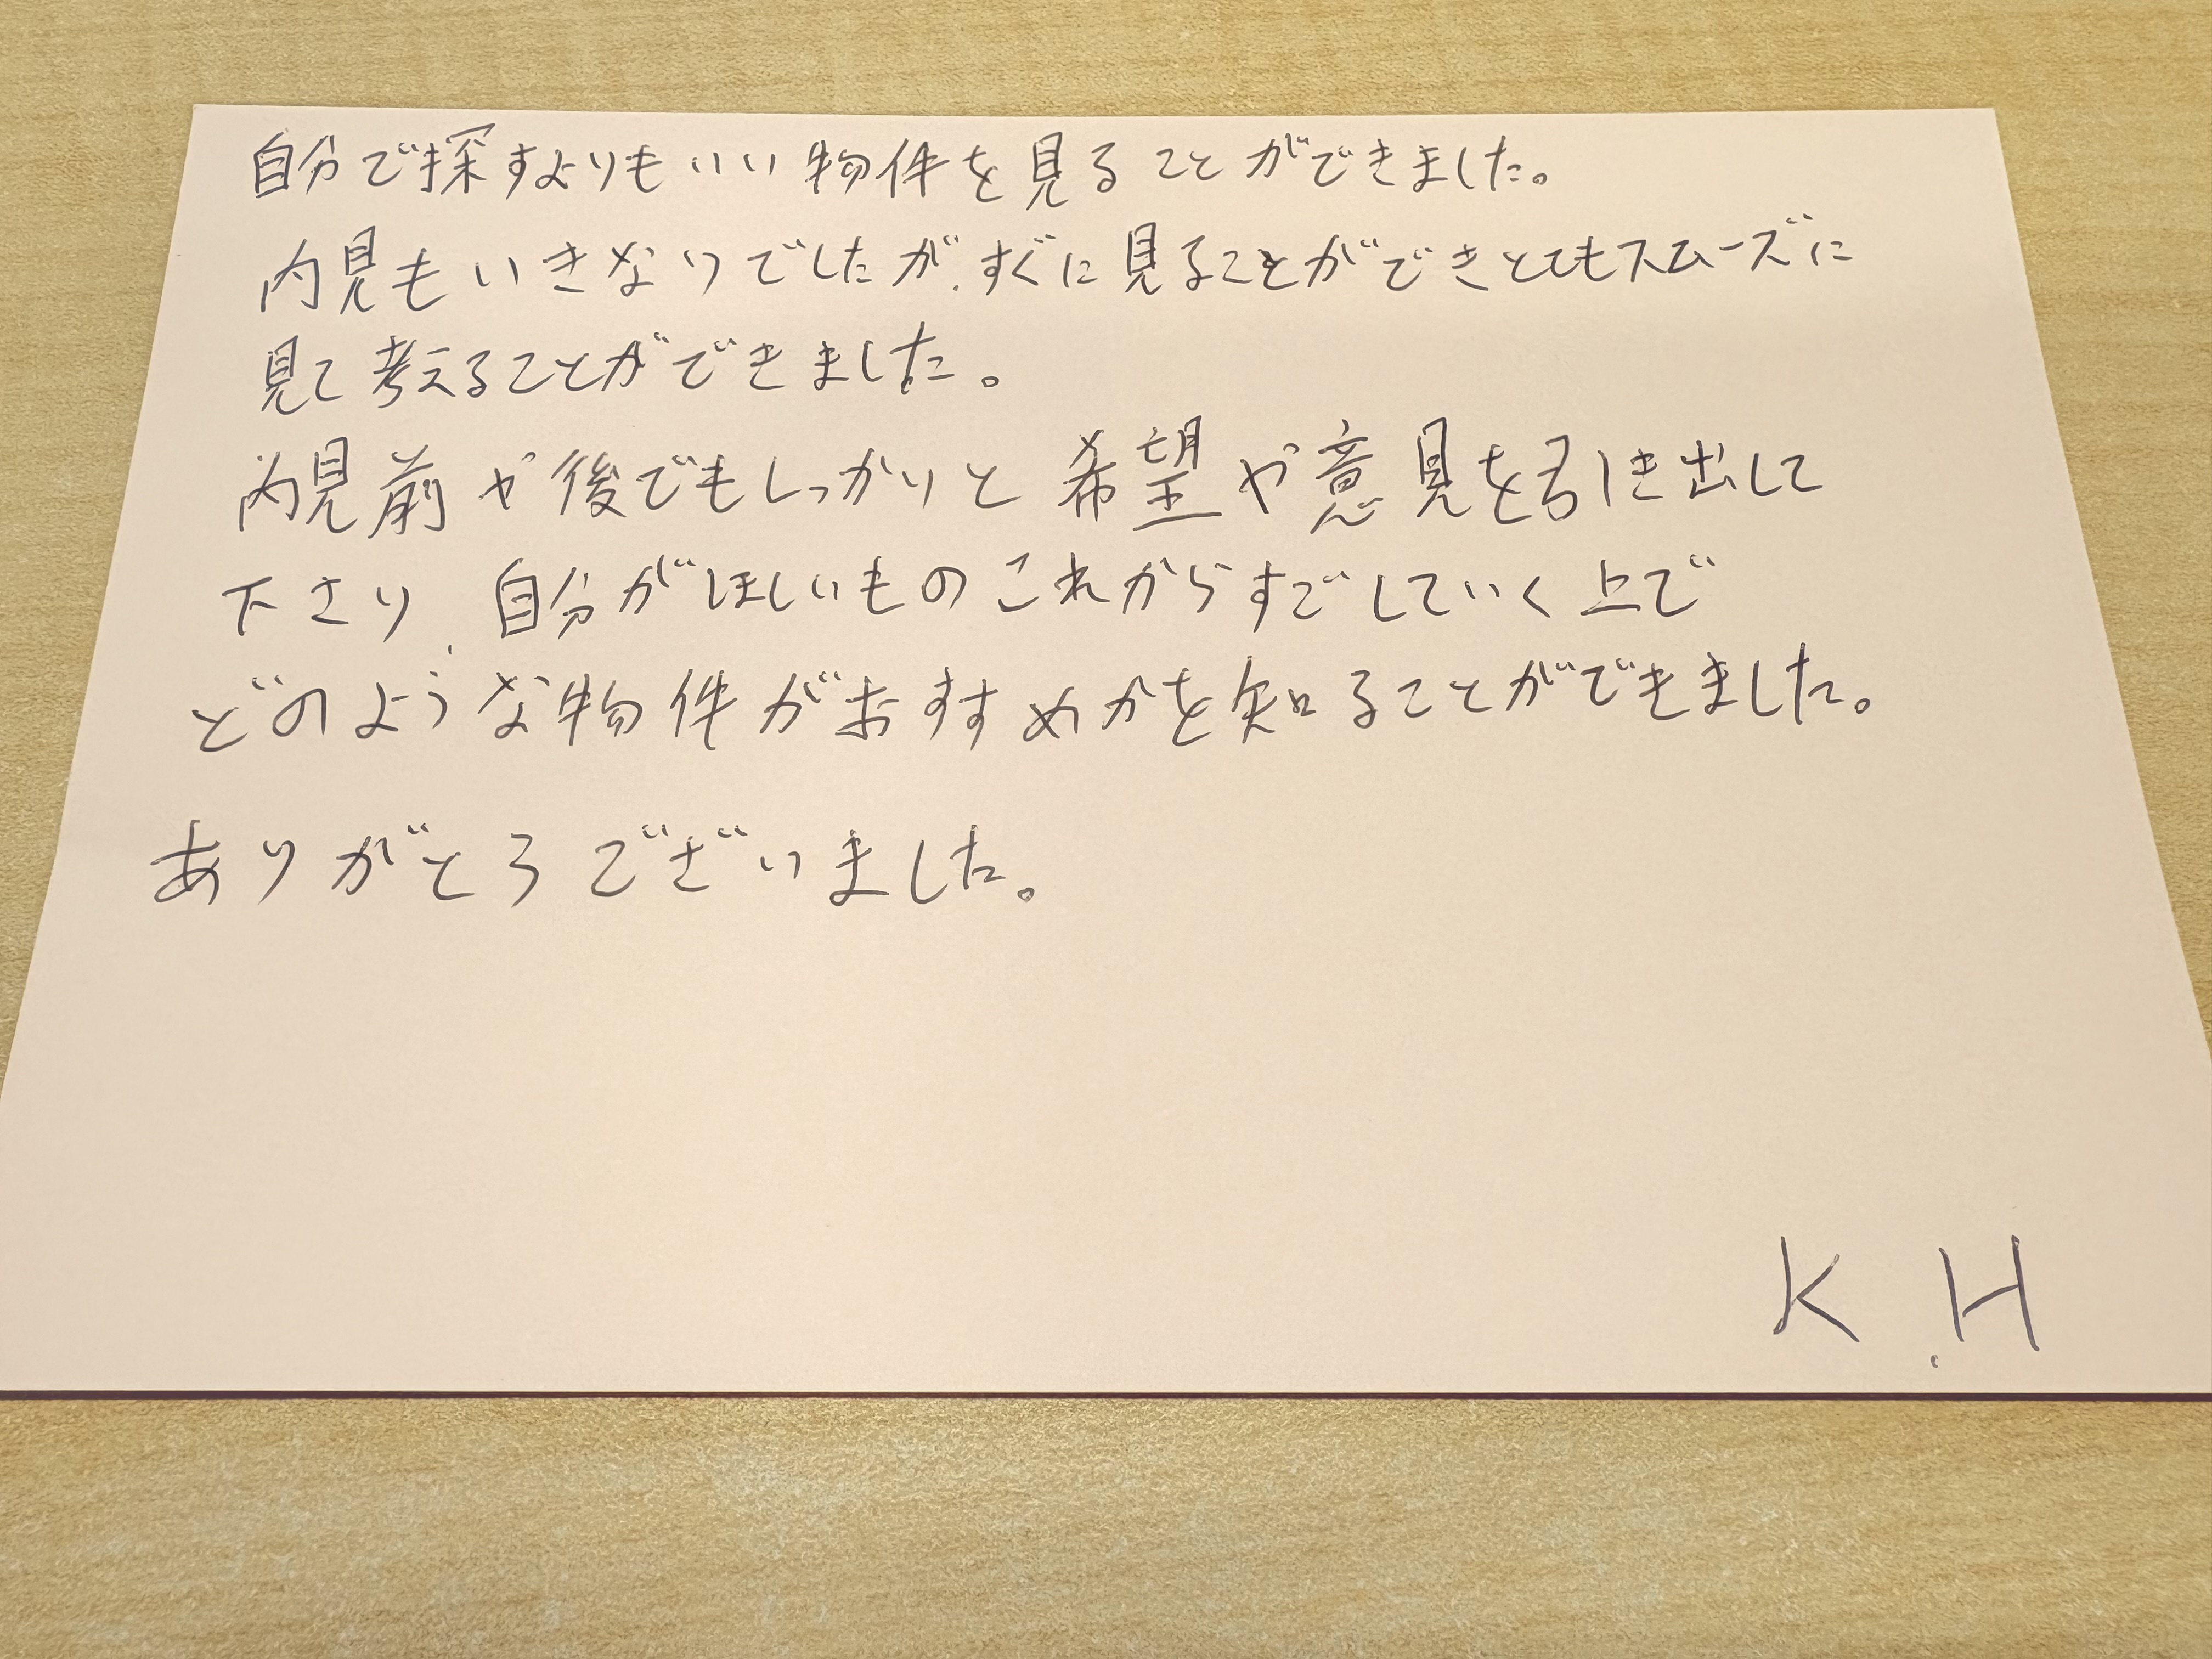 自分で探すよりもいい物件を見ることができました。
内見もいきなりでしたが、すぐに見ることができとてもスムーズに
見て考えることができました。
内見前や後でもしっかりと希望や意見を引き出して
下さり、自分がほしいものこれからすごしていく上で
どのような物件がおすすめかを知ることができました。
ありがとうございました。
K.H